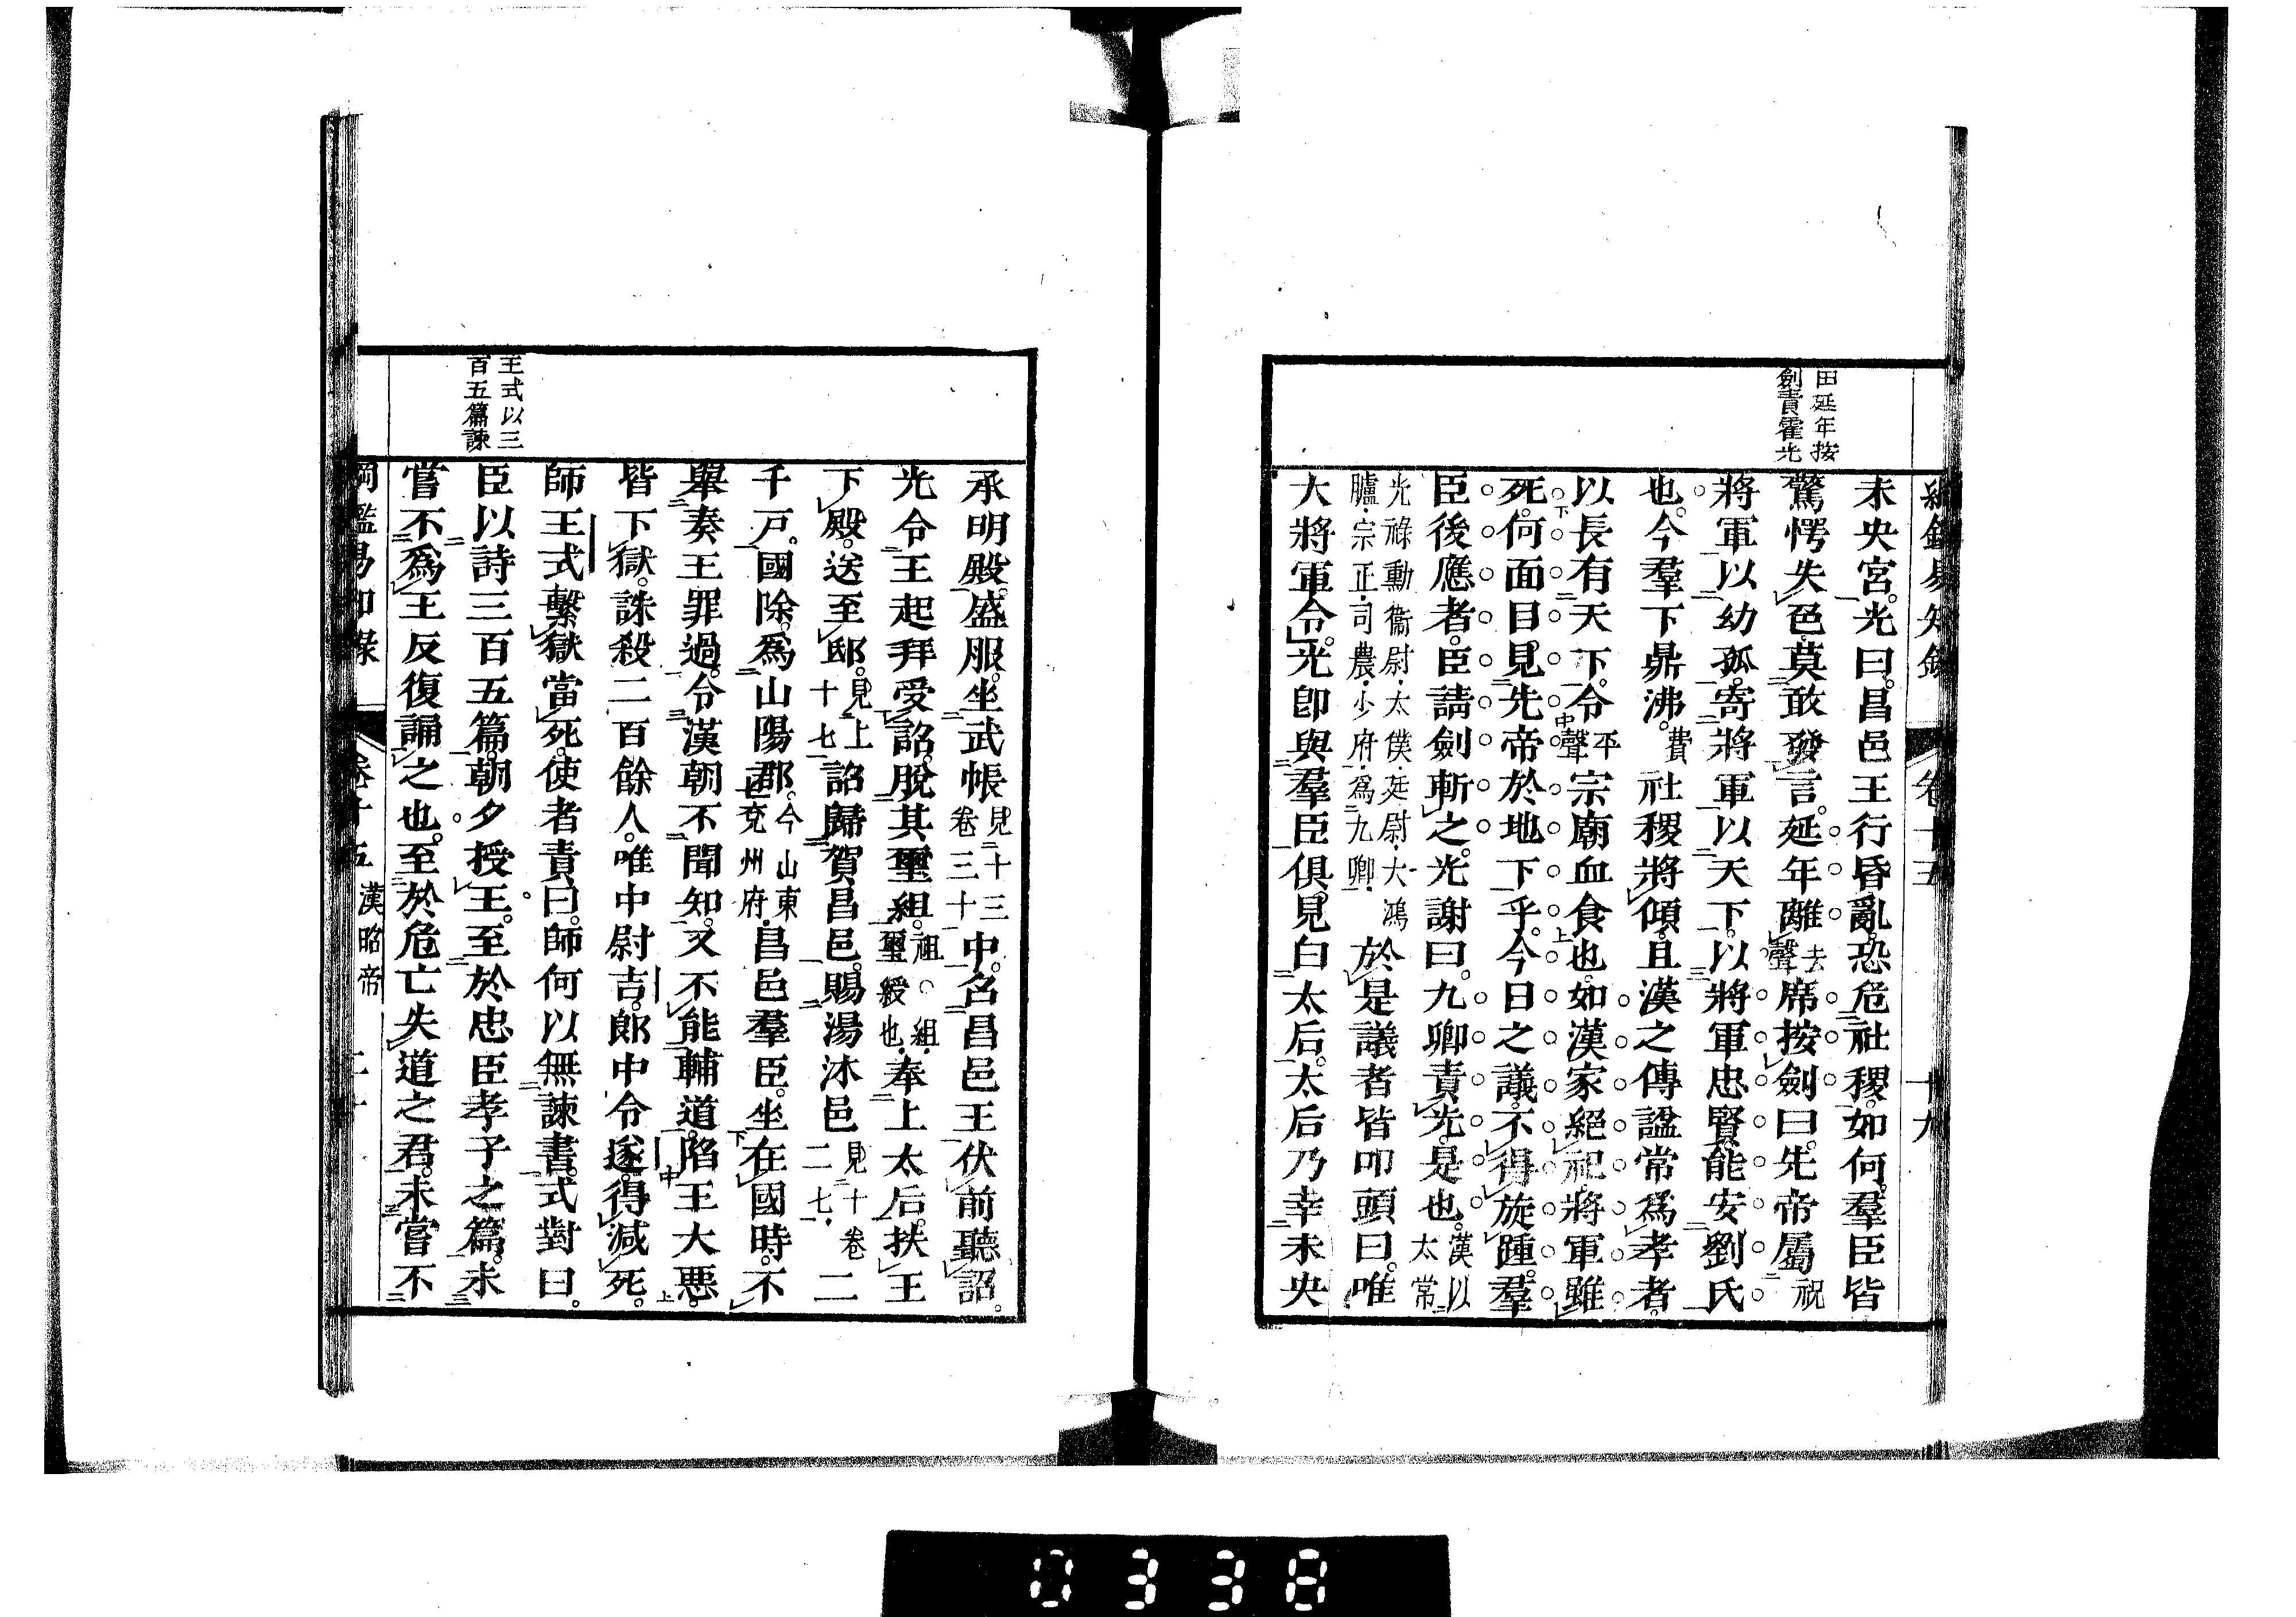 田延年按
劍責霍光
卷十五
十九
未央宮。光曰。昌邑王行昏亂。恐危社稷。如何。羣臣皆
驚愕失色。莫敢發言。延年離去聲席按劍曰。先帝屬祝
將軍以幼孤。寄將軍以天下。以將軍忠賢。能安劉氏
也。今羣下鼎沸。費社稷將傾。且漢之傳諡常爲孝者。
以長有天下。令平聲宗廟血食也。如漢家絕祀。將軍雖
死。何面目見先帝於地下乎。今日之議。不得旋踵。羣
臣後應者。臣請劍斬之。光謝曰。九卿責光。是也。漢以太常
光祿勳衞尉太僕廷尉大鴻臚宗正司農少府爲九卿於是議者皆叩頭曰。唯
大將軍令。光卽與羣臣俱見白太后。太后乃幸未央
承明殿。盛服。坐武帳見十三卷三十中。召昌邑王伏前聽詔。
光令王起拜受詔。脫其璽組。祖○組璽綬也奉上太后。扶王
下殿。送至邸。見上十七詔歸賀昌邑。賜湯沐邑見十卷二七二
千戸。國除。爲山陽郡。今山東兗州府昌邑羣臣。坐在國時。不
舉奏王罪過。令漢朝不聞知。又不能輔道。陷王大惡。
皆下獄。誅殺二百餘人。唯中尉吉。郎中令遂。得減死。
師王式繫獄當死。使者責曰。師何以無諫書。式對曰。
臣以詩三百五篇。朝夕授王。至於忠臣孝子之篇。未
嘗不爲王反復誦之也。至於危亡失道之君。未嘗不
王式以三
百五篇諫
漢昭帝
0338